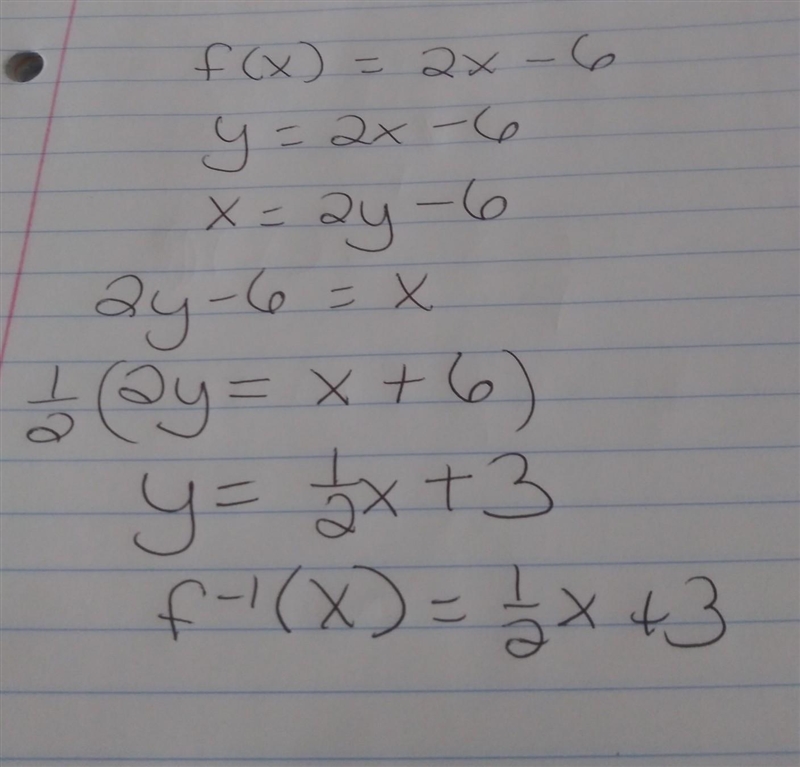 f(x) = 2x - 6
y = 2x - 6
x = 2y - 6
2y - 6 = x
1/2 (2y = x + 6)
y = 1/2 x + 3
f⁻¹(x) = 1/2 x + 3